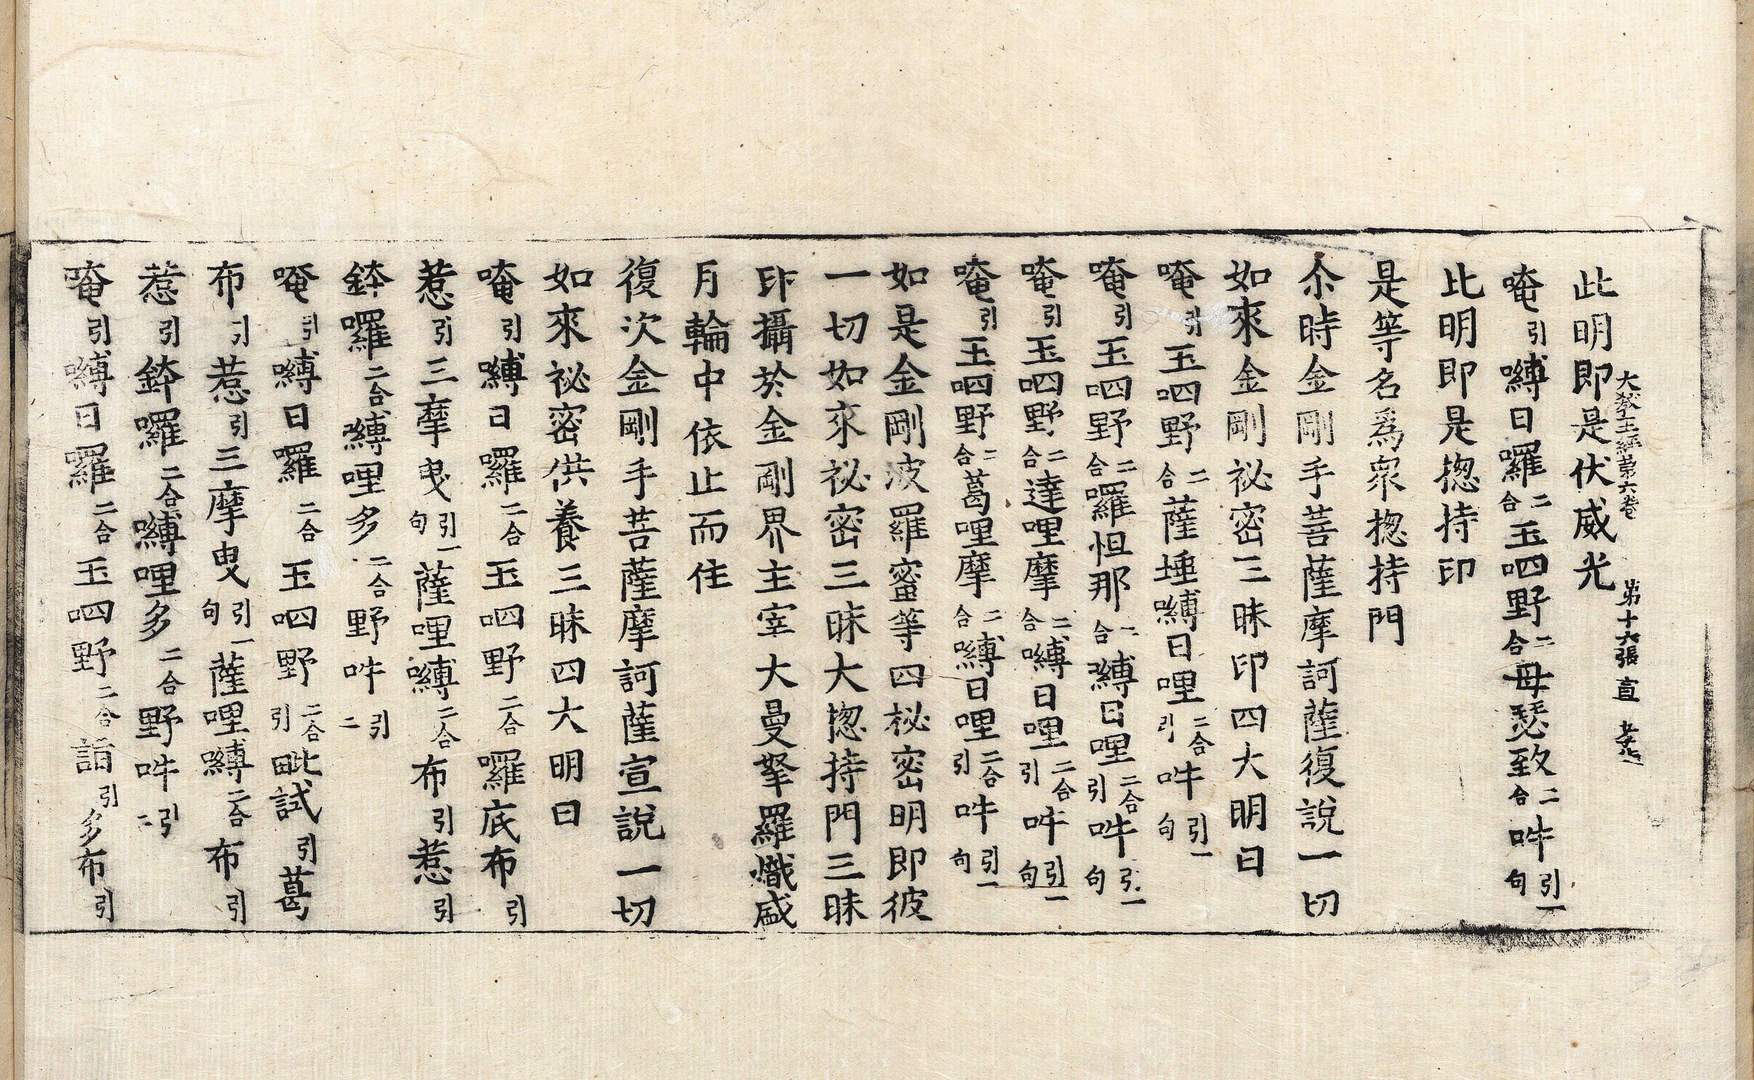 此明即是伏威光
大敎王經第六卷 第十六張 直
唵引嚩日囉二合玉呬野二合母瑟致二合吽引一句
此明即是揔持印
是等名爲衆揔持門
尒時金剛手菩薩摩訶薩復說一切
如來金剛祕密三昧印四大明曰
唵引玉呬野二合薩埵嚩日哩二合引吽引一句
唵引玉呬野二合囉怛那二合嚩日哩二合引吽引一句
唵引玉呬野二合達哩摩二合嚩日哩二合引吽引一句
唵引玉呬野二合葛哩摩二合嚩日哩二合引吽引一句
如是金剛波羅蜜等四祕密明即彼
一切如來祕密三昧大揔持門三昧
印攝於金剛界主宰大曼拏羅熾盛
月輪中依止而住
復次金剛手菩薩摩訶薩宣說一切
如來祕密供養三昧四大明曰
唵引嚩日囉二合玉呬野二合囉底布引
惹引三摩曳引一句薩哩嚩二合布引惹引
鉢囉二合嚩哩多二合野吽引二
唵引嚩日囉二合玉呬野二合引毗試引葛
布引惹引三摩曳引一句薩哩嚩二合布引
惹引鉢囉二合嚩哩多二合野吽引二
唵引嚩日囉二合玉呬野二合詣引多布引